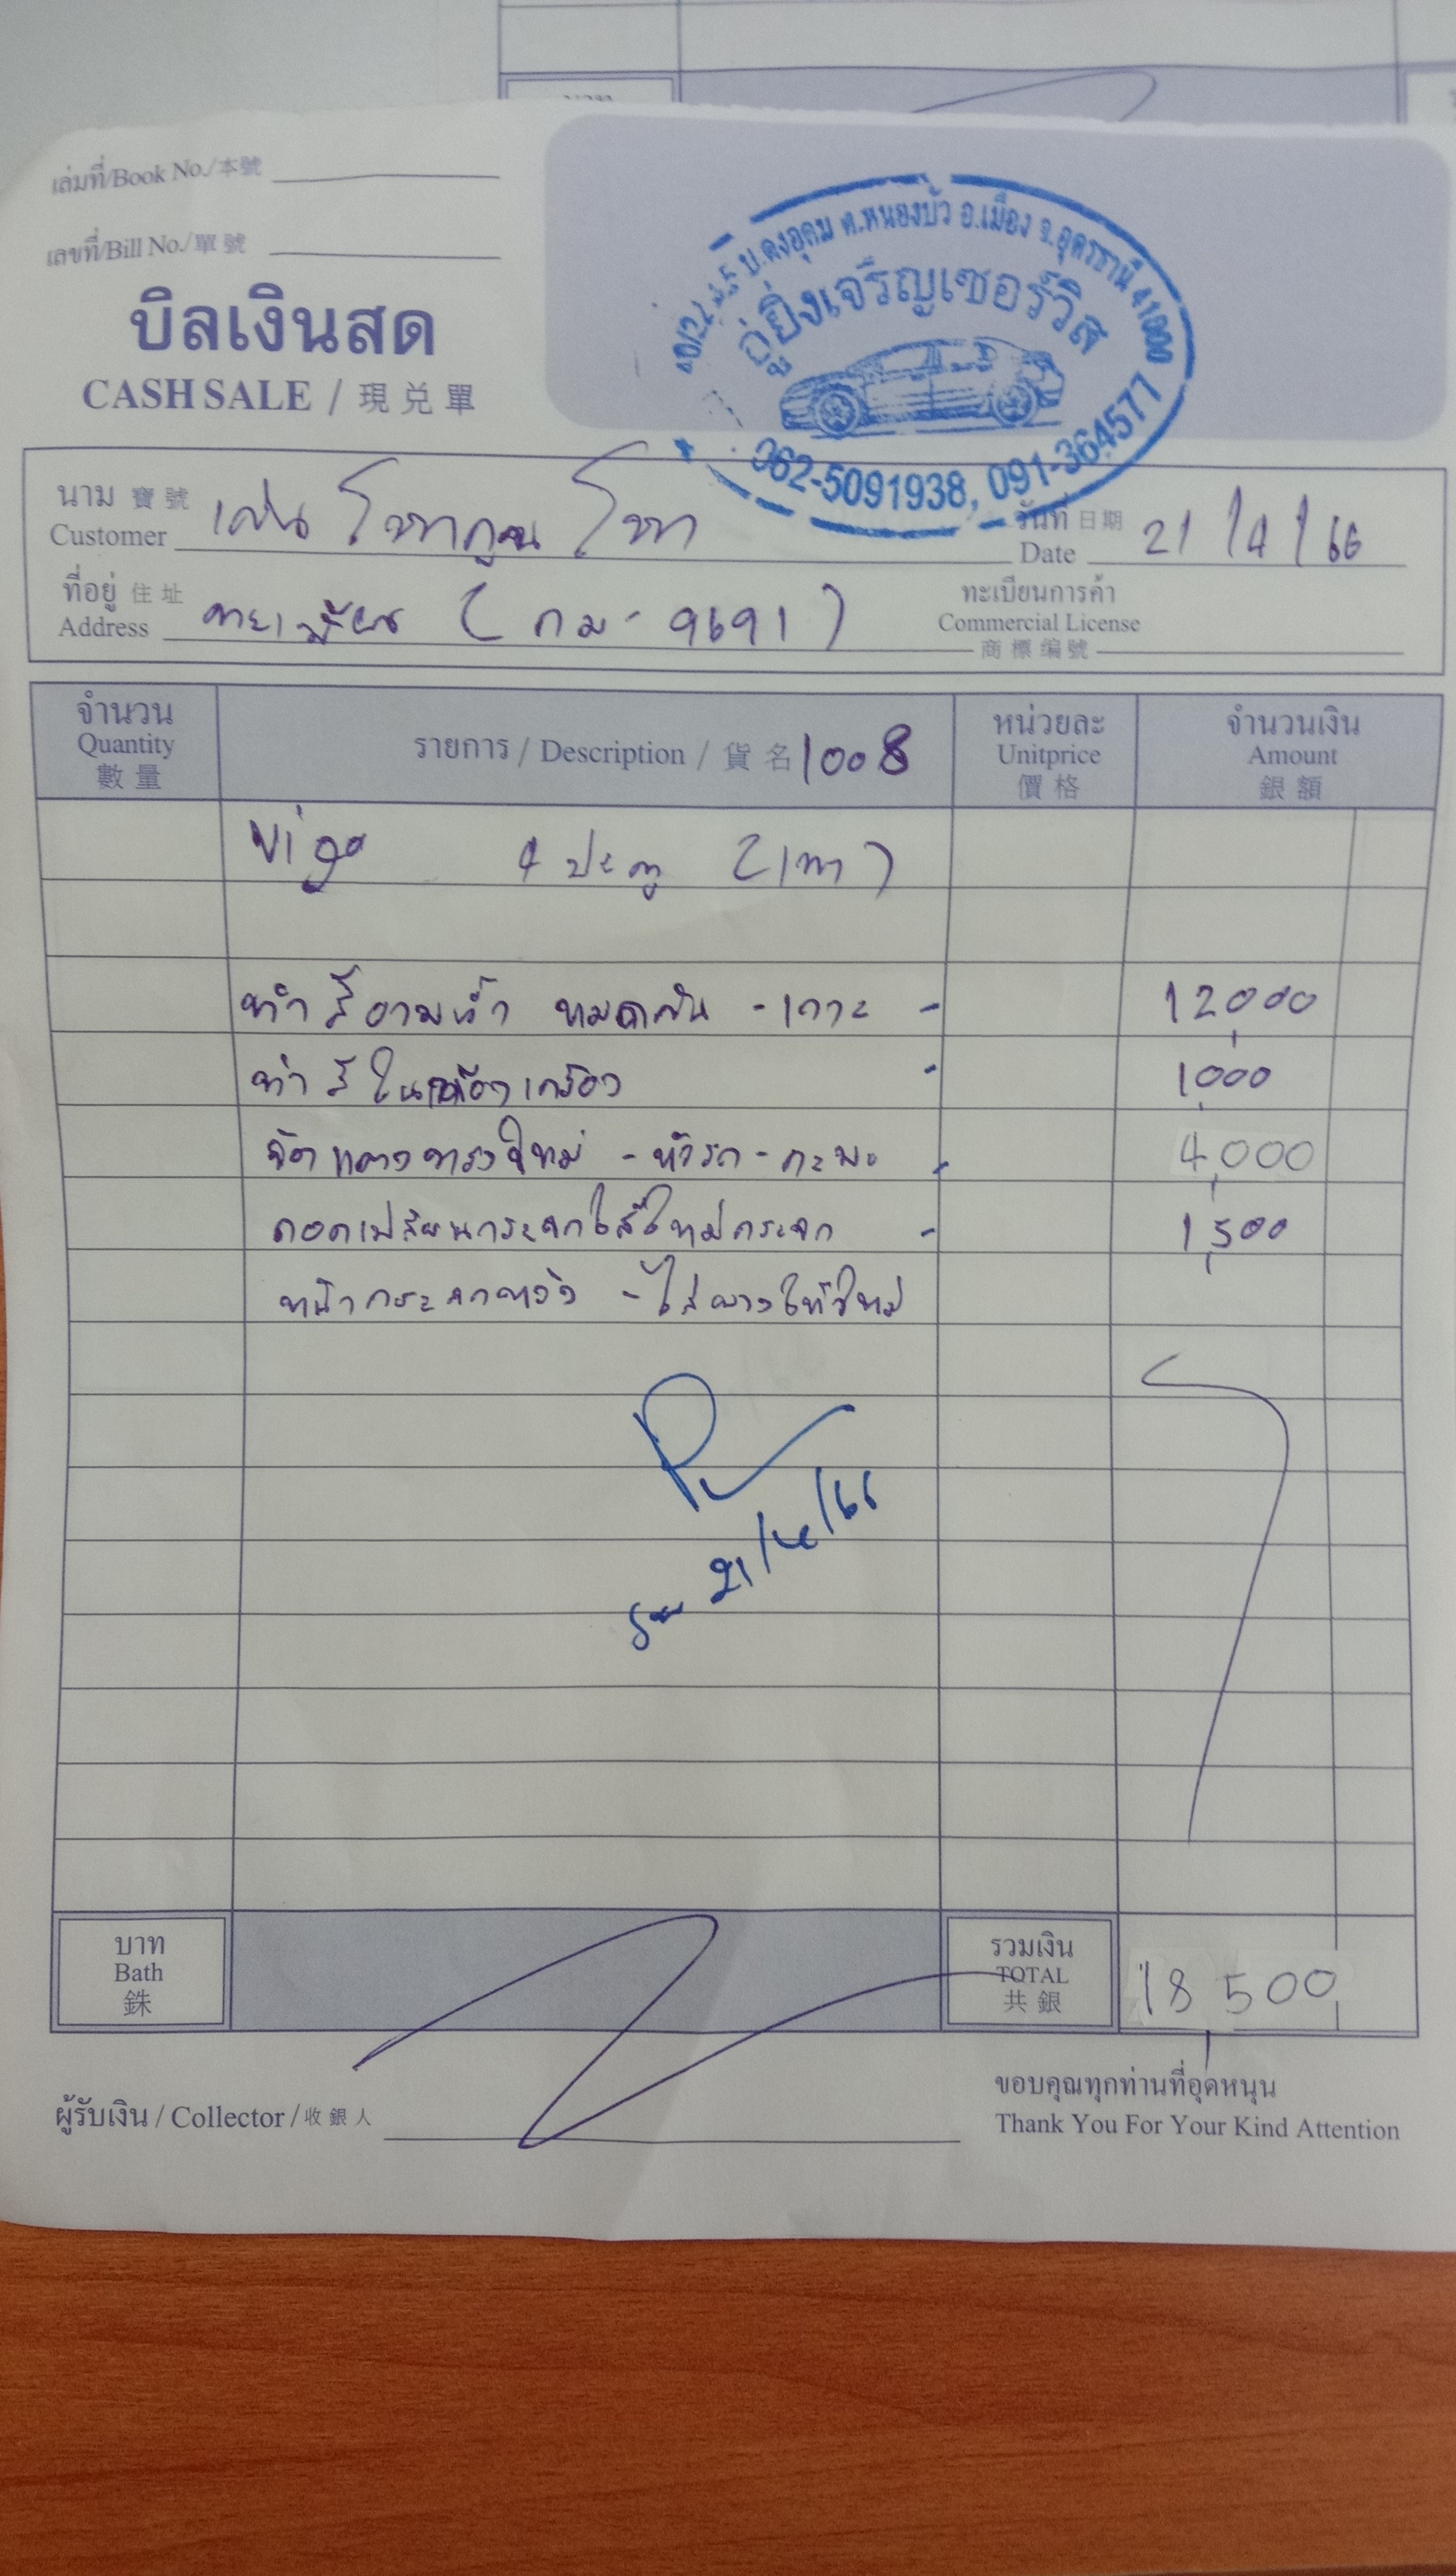 เล่มที่/Book No./本號
เลขที่/Bill No./單號
บิลเงินสด
CASH SALE / 現兑單
บ.ดงอุดม ต.หนองบัว อ.เมือง จ.อุดรธานี 41000
อู่ยิ่งเจริญเซอร์วิส
062-5091938, 091-364577
นาม 寶號
Customer
วันที่ 日期
Date 21/4/66
ที่อยู่ 住址
Address ทะเบียน (กม-9691)
ทะเบียนการค้า
Commercial License
商標编號
จำนวน
Quantity
數量
รายการ / Description / 貨名 1008
หน่วยละ
Unitprice
價格
จำนวนเงิน
Amount
銀額
Vigo 4 ประตู (เทา)
ทำสีอาบน้ำ หมดคัน - เกาะ - 12,000
ทำสีในห้องเครื่อง - 1,000
จัดแต่งทรงใหม่ - หัวรถ - กะบะ - 4,000
ถอดเปลี่ยนกระจกใส่ใหม่กระจก - 1,500
หน้ากระจกหลัง - ใส่ยางให้ใหม่
21/4/66
บาท
Bath
銖
รวมเงิน
TOTAL
共銀
18,500
ผู้รับเงิน / Collector / 收銀人
ขอบคุณทุกท่านที่อุดหนุน
Thank You For Your Kind Attention